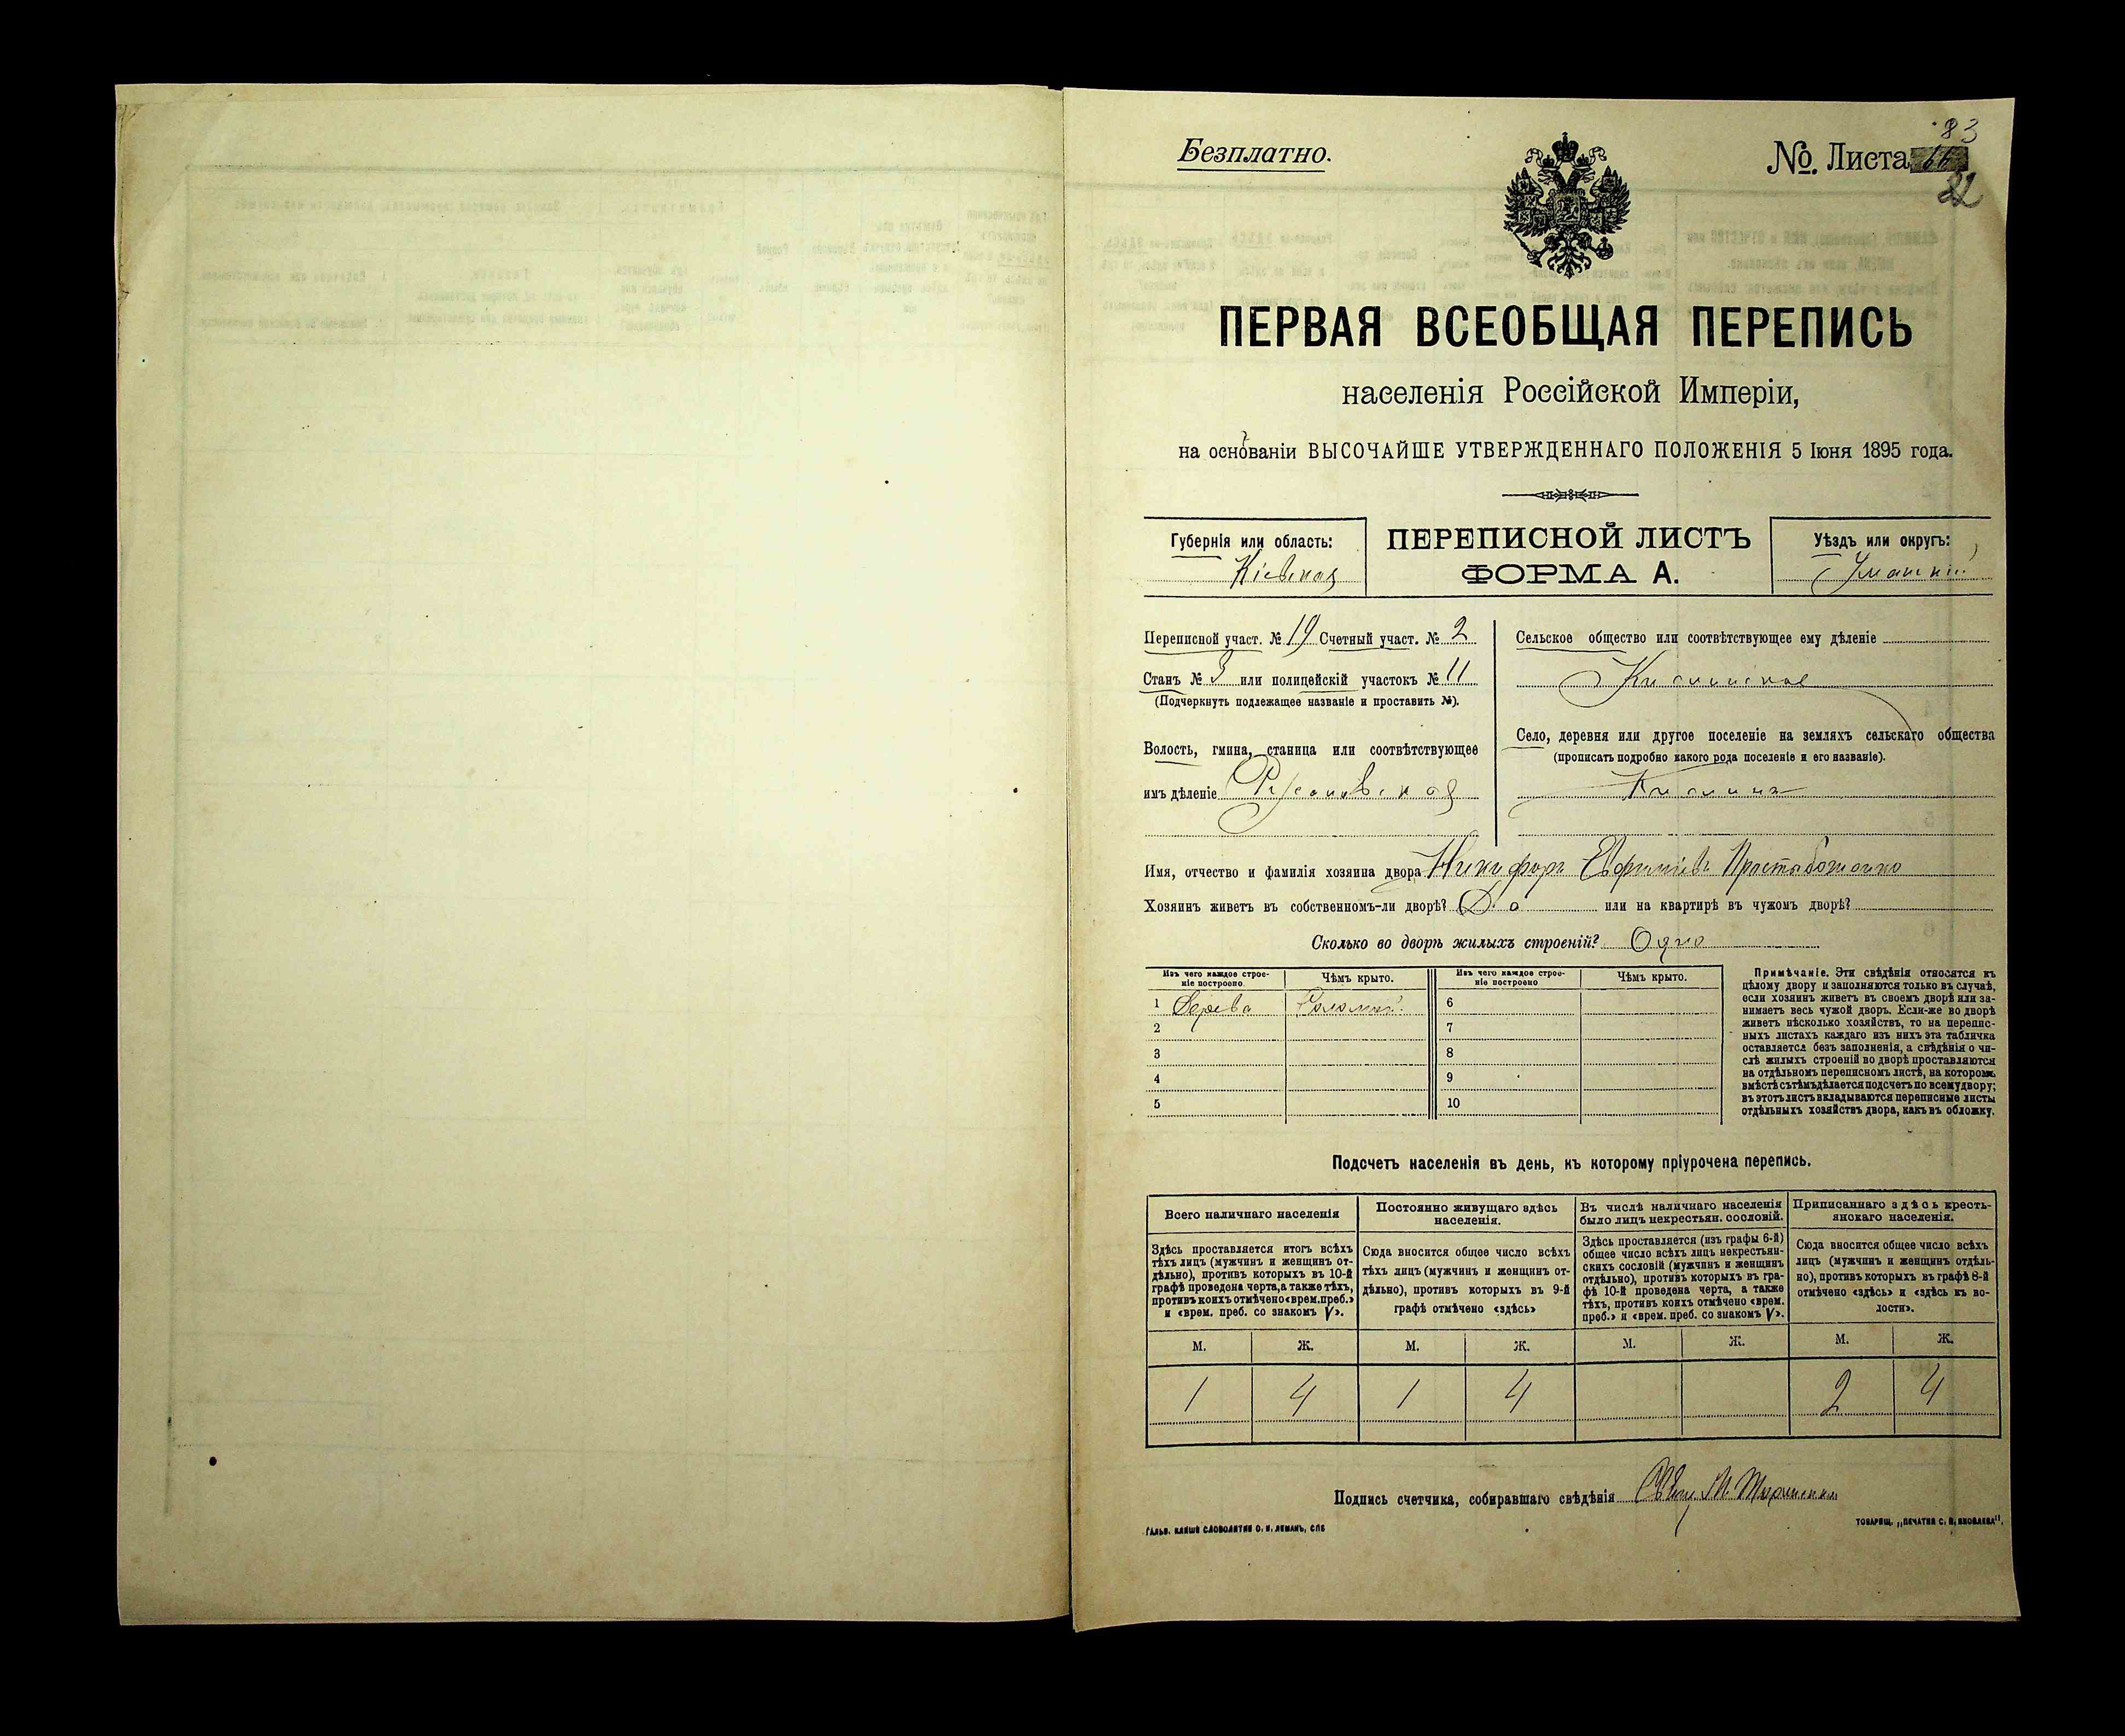 Безплатно.
83
№. Листа 66
82
ПЕРВАЯ ВСЕОБЩАЯ ПЕРЕПИСЬ
населенія Россійской Имперіи,
на основаніи ВЫСОЧАЙШЕ УТВЕРЖДЕННАГО ПОЛОЖЕНІЯ 5 Іюня 1895 года.
Губернія или область:
Кіевская
ПЕРЕПИСНОЙ ЛИСТЪ
ФОРМА А.
Уѣздъ или округъ:
Уманскій
Переписной участ. № 19 Счетный участ. № 2
Станъ № 3 или полицейскій участокъ № 11
(Подчеркнуть подлежащее названіе и проставить №).
Волость, гмина, станица или соотвѣтствующее
имъ дѣленіе
Сельское общество или соотвѣтствующее ему дѣленіе
Село, деревня или другое поселеніе на земляхъ сельскаго общества
(прописать подробно какого рода поселеніе и его названіе).
Имя, отчество и фамилія хозяина двора Никифоръ
Хозяинъ живетъ въ собственномъ-ли дворѣ? Да или на квартирѣ въ чужомъ дворѣ?
Сколько во дворѣ жилыхъ строеній? Одно
Изъ чего каждое строе-
ніе построено.
Чѣмъ крыто.
Изъ чего каждое строе-
ніе построено
Чѣмъ крыто.
1 Дерева Соломой
2
3
4
5
6
7
8
9
10
Примѣчаніе. Эти свѣдѣнія относятся къ
цѣлому двору и заполняются только въ случаѣ,
если хозяинъ живетъ въ своемъ дворѣ или за-
нимаетъ весь чужой дворъ. Если-же во дворѣ
живетъ нѣсколько хозяйствъ, то на перепис-
ныхъ листахъ каждаго изъ нихъ эта табличка
оставляется безъ заполненія, а свѣдѣнія о чи-
слѣ жилыхъ строеній во дворѣ проставляются
на отдѣльномъ переписномъ листѣ, на которомъ
вмѣстѣ съ тѣмъ дѣлается подсчетъ по всему двору;
въ этотъ листъ вкладываются переписные листы
отдѣльныхъ хозяйствъ двора, какъ въ обложку.
Подсчетъ населенія въ день, къ которому пріурочена перепись.
Всего наличнаго населенія
Здѣсь проставляется итогъ всѣхъ
тѣхъ лицъ (мужчинъ и женщинъ от-
дѣльно), противъ которыхъ въ 10-й
графѣ проведена черта, а также тѣхъ,
противъ коихъ отмѣчено «врем. преб.»
и «врем. преб. со знакомъ V».
Постоянно живущаго здѣсь
населенія.
Сюда вносится общее число всѣхъ
тѣхъ лицъ (мужчинъ и женщинъ от-
дѣльно), противъ которыхъ въ 9-й
графѣ отмѣчено «здѣсь»
Въ числѣ наличнаго населенія
было лицъ некрестьян. сословій.
Здѣсь проставляется (изъ графы 6-й)
общее число всѣхъ лицъ некрестьян-
скихъ сословій (мужчинъ и женщинъ
отдѣльно), противъ которыхъ въ гра-
фѣ 10-й проведена черта, а также
тѣхъ, противъ коихъ отмѣчено «врем.
преб.» и «врем. преб. со знакомъ V».
Приписаннаго здѣсь кресть-
янскаго населенія.
Сюда вносится общее число всѣхъ
лицъ (мужчинъ и женщинъ отдѣль-
но), противъ которыхъ въ графѣ 8-й
отмѣчено «здѣсь» и «здѣсь къ во-
лости».
М. Ж. М. Ж. М. Ж. М. Ж.
1 4 1 4 2 4
Подпись счетчика, собиравшаго свѣдѣнія
ГАЛЬВ. КЛИШЕ СЛОВОЛИТНИ О. И. ЛЕМАНЪ, СПБ
ТОВАРИЩ. „ПЕЧАТНЯ С. П. ЯКОВЛЕВА".